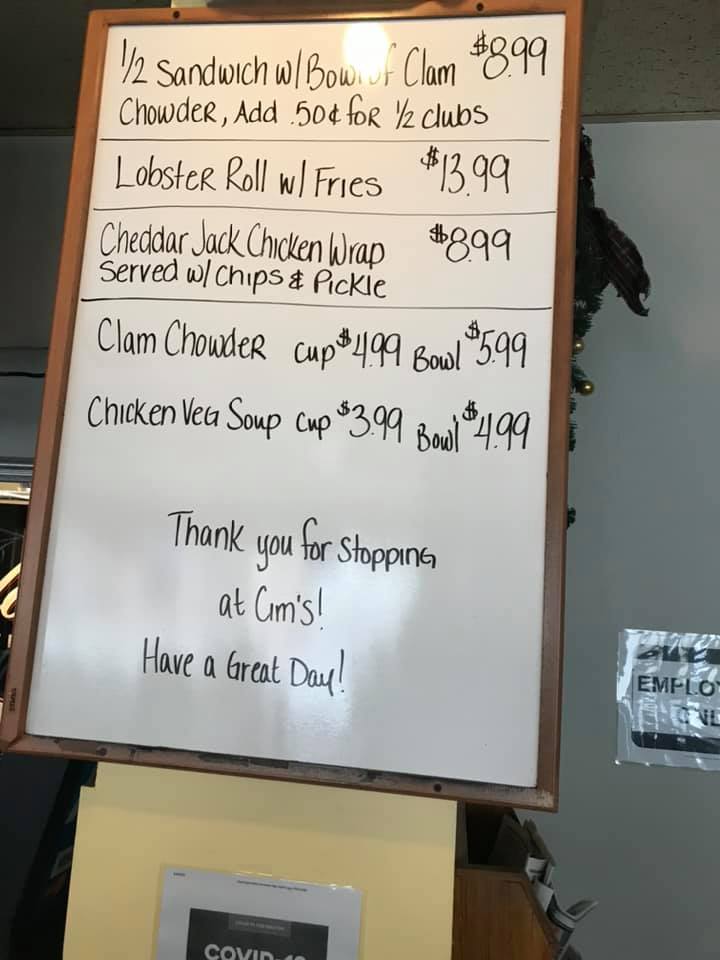 1/2 Sandwich w/ Bowl of Clam $8.99
Chowder, Add .50¢ for 1/2 clubs
Lobster Roll w/ Fries $13.99
Cheddar Jack Chicken Wrap $8.99
Served w/ Chips & Pickle
Clam Chowder Cup $4.99 Bowl $5.99
Chicken Veg Soup Cup $3.99 Bowl $4.99
Thank you for Stopping
at Cim's!
Have a Great Day!
EMPLO
ONL
COVID-19